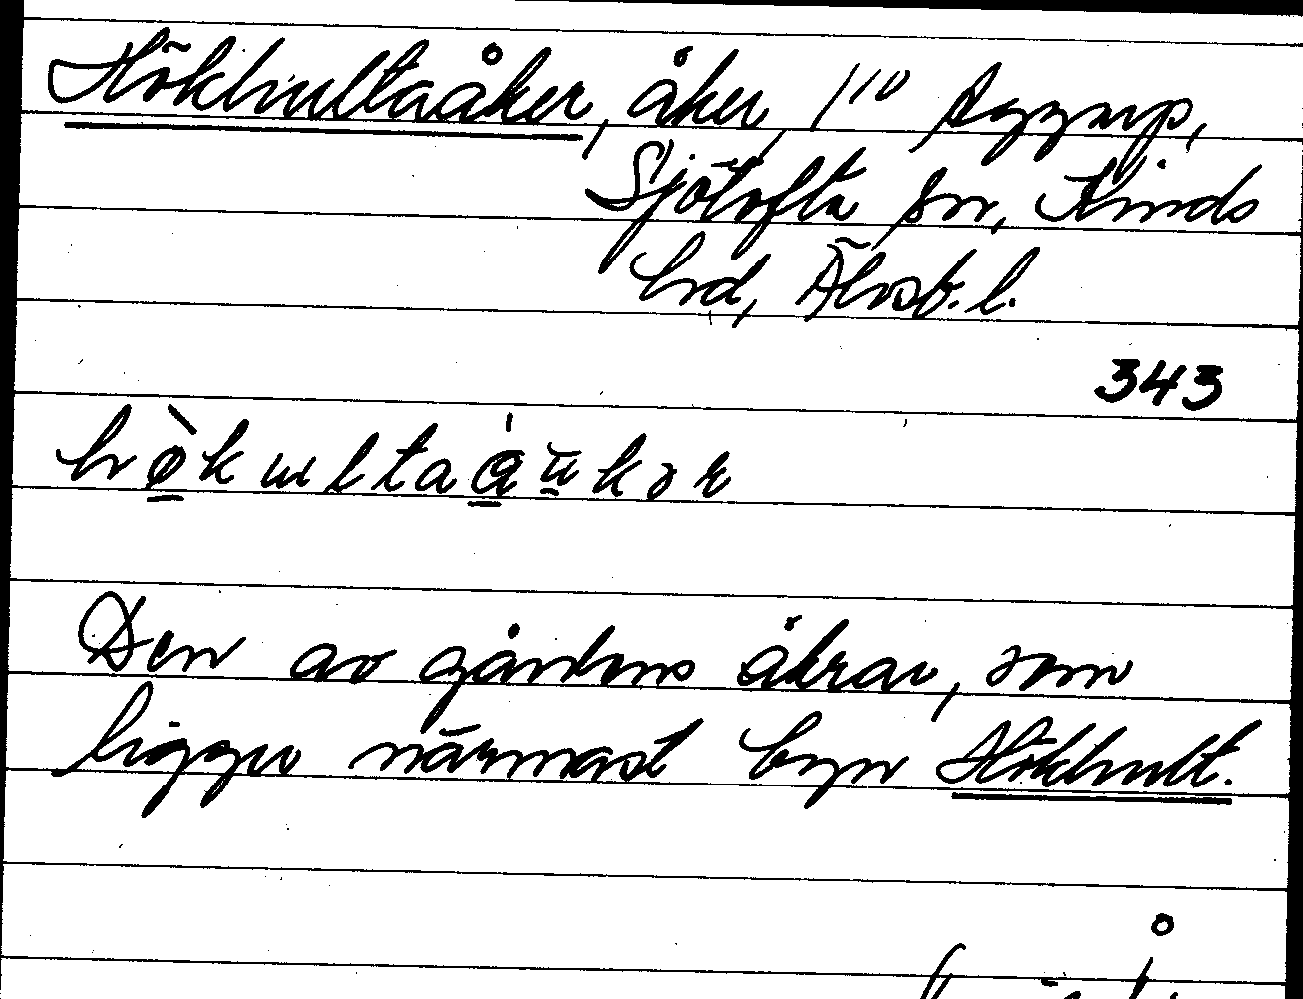 Hökhultaåker, åker, 1/10 Aggarp,
Sjötofta sn, Kinds
hd, Älvsb. l.
343
hø̱̀kultaɑ̱́u̯kər
Den av gårdens åkrar, som
ligger närmast byn Hökhult.